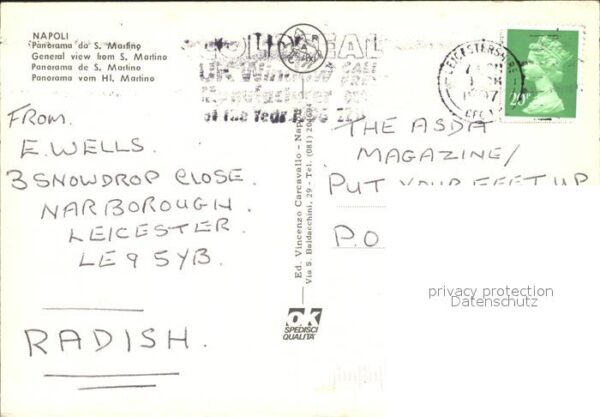 NAPOLI
Panorama da S. Martino
General view from S. Martino
Panorama de S. Martino
Panorama vom Hl. Martino
FROM,
E. WELLS.
3 SNOWDROP CLOSE.
NARBOROUGH.
LEICESTER.
LE9 5YB.
RADISH.
Ed. Vincenzo Carcavallo - Napoli
Via S. Baldacchini, 29 - Tel. (081)
ok
SPEDISCI
QUALITA'
of the Year
LEICESTERSHIRE
20P
THE ASDA
MAGAZINE/
PUT YOUR FEET UP
P.O
privacy protection
Datenschutz